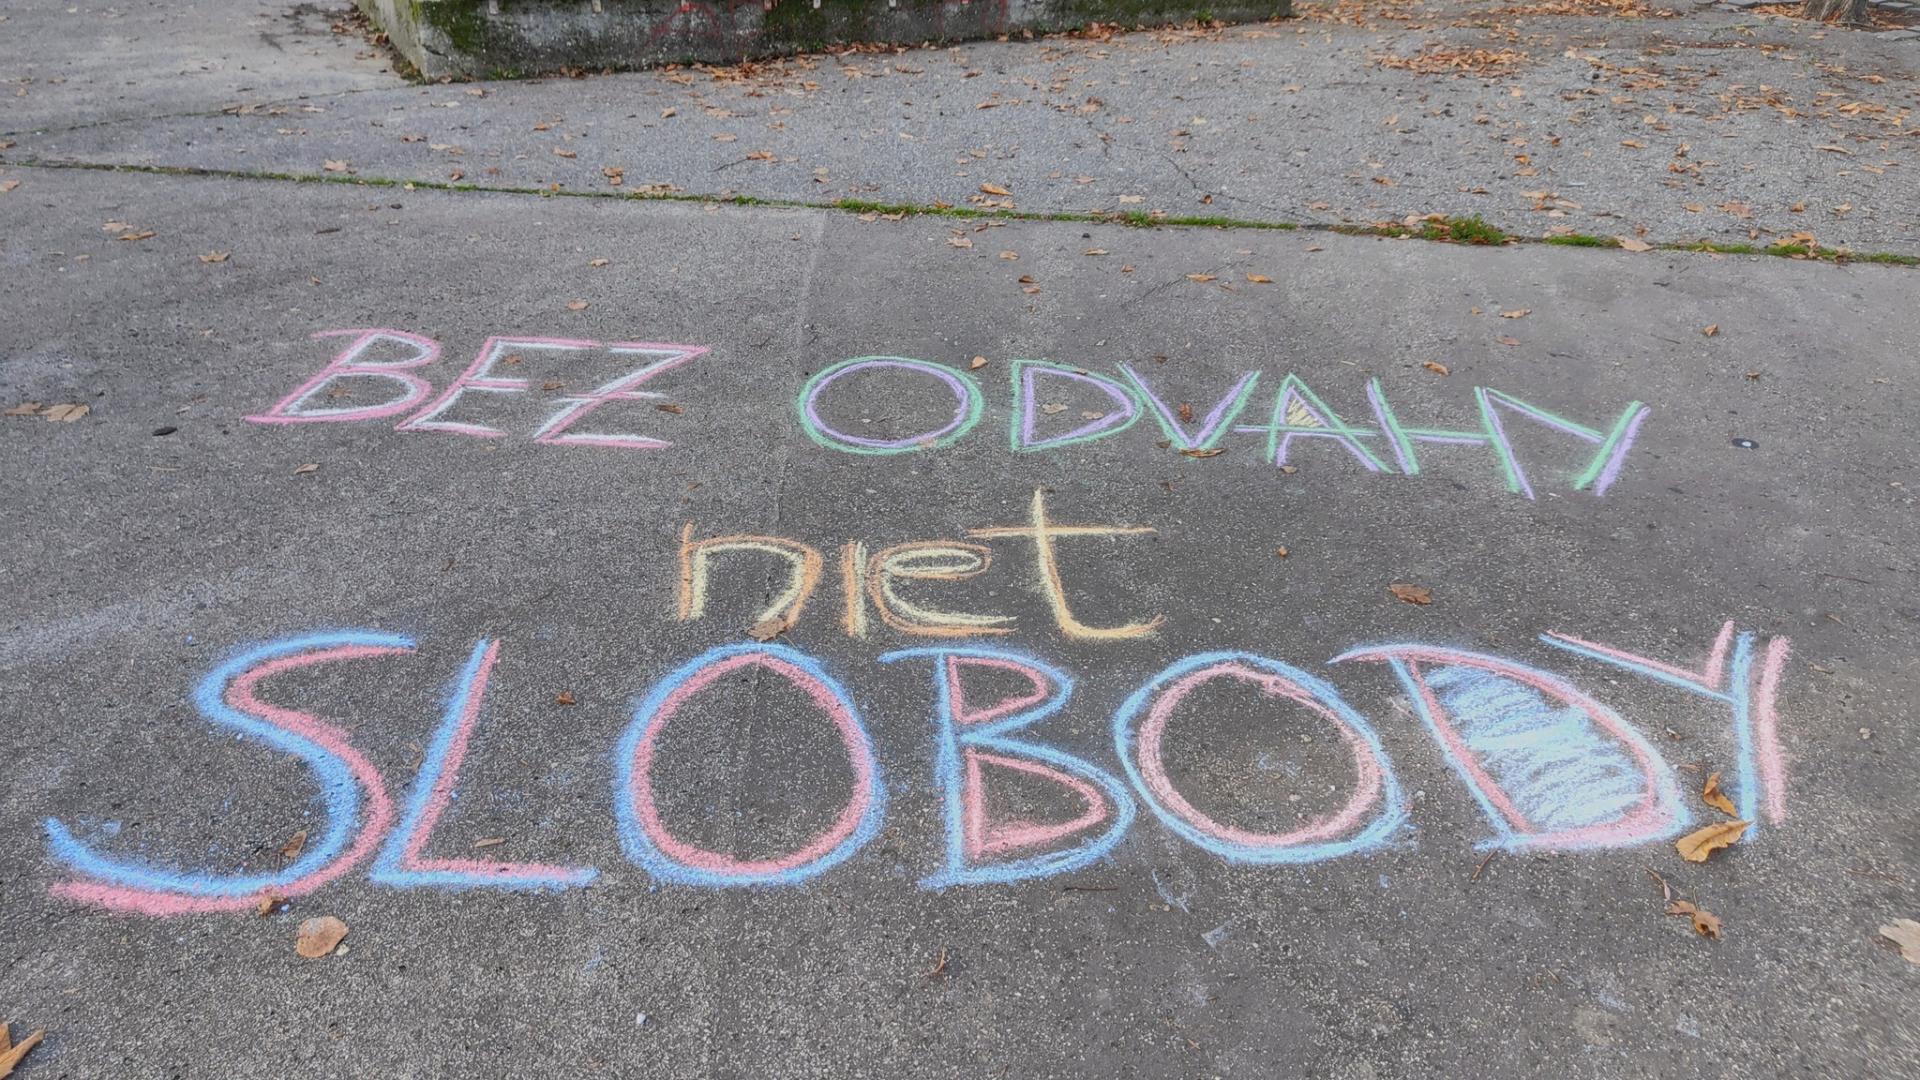 BEZ ODVAHY
niet
SLOBODY